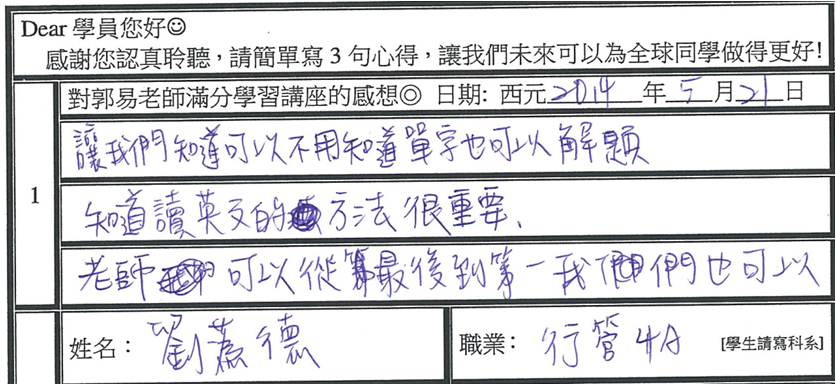 Dear 學員您好☺
感謝您認真聆聽，請簡單寫 3 句心得，讓我們未來可以為全球同學做得更好!
1
對郭易老師滿分學習講座的感想◎ 日期: 西元2014年5月21日
讓我們知道可以不用知道單字也可以解題
知道讀英文的方法很重要、
老師可以從第最後到第一我們也可以
姓名： 劉德
職業： 行管4A [學生請寫科系]